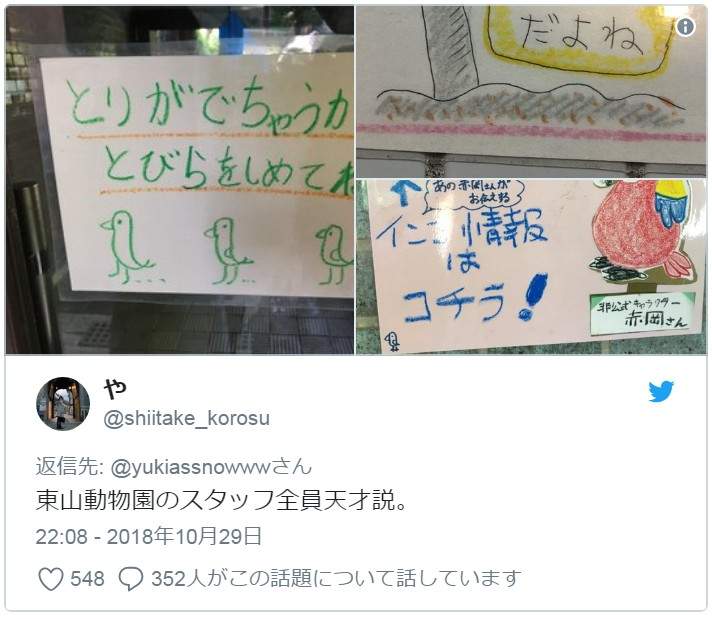 とりがでちゃうか
とびらをしめてね
だよね
あの赤岡さんが
お伝えする
インコ情報
は
コチラ!
非公式キャラクター
赤岡さん
や
@shiitake_korosu
返信先: @yukiassnowwwさん
東山動物園のスタッフ全員天才説。
22:08 - 2018年10月29日
548 352人がこの話題について話しています